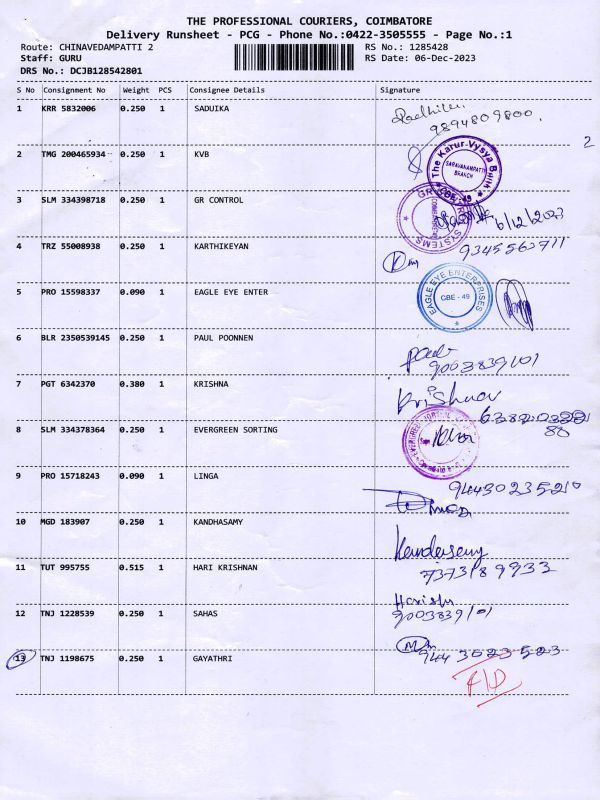 THE PROFESSIONAL COURIERS, COIMBATORE
Delivery Runsheet - PCG - Phone No.:0422-3505555 - Page No.:1
Route: CHINAVEDAMPATTI 2 RS No.: 1285428
Staff: GURU RS Date: 06-Dec-2023
DRS No.: DCJB128542801
S No Consignment No Weight PCS Consignee Details Signature
1 KRR 5832006 0.250 1 SADUIKA
9894809800.
2
2 TMG 200465934 0.250 1 KVB
The Karur Vysya Bank
SARAVANAMPATTI
BRANCH
3 SLM 334398718 0.250 1 GR CONTROL
SYSTEMS
6/12/2023
4 TRZ 55008938 0.250 1 KARTHIKEYAN
5 PRO 15598337 0.090 1 EAGLE EYE ENTER
EAGLE EYE ENTERPRISES
CBE - 49
6 BLR 2350539145 0.250 1 PAUL POONNEN
Paul
9003839101
7 PGT 6342370 0.380 1 KRISHNA
Krishnav
8 SLM 334378364 0.250 1 EVERGREEN SORTING
9 PRO 15718243 0.090 1 LINGA
10 MGD 183907 0.250 1 KANDHASAMY
Kandasamy
11 TUT 995755 0.515 1 HARI KRISHNAN
7373189933
12 TNJ 1228539 0.250 1 SAHAS
Harish
9003839101
13 TNJ 1198675 0.250 1 GAYATHRI
944 3023523